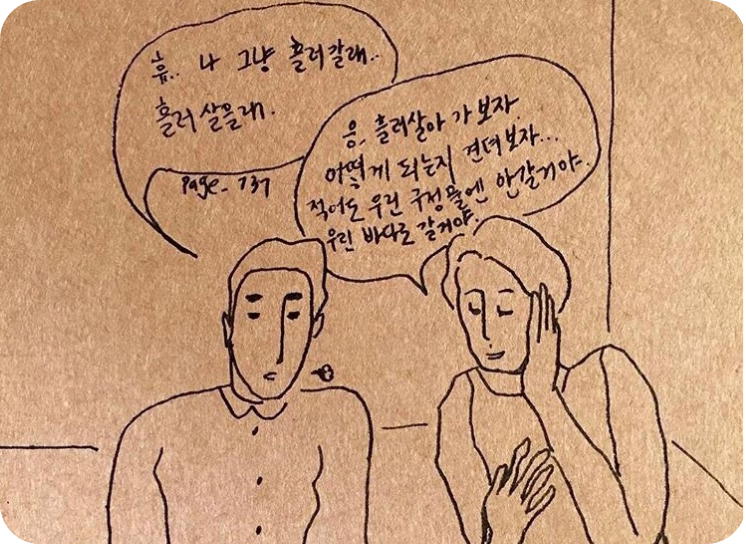 휴.. 나 그냥 흘러갈래..
흘러 살을래.
Page_ 737
응_ 흘러살아 가 보자.
어떻게 되는지 견뎌보자...
적어도 우린 구정물엔 안갈거야.
우린 바다로 갈거야.